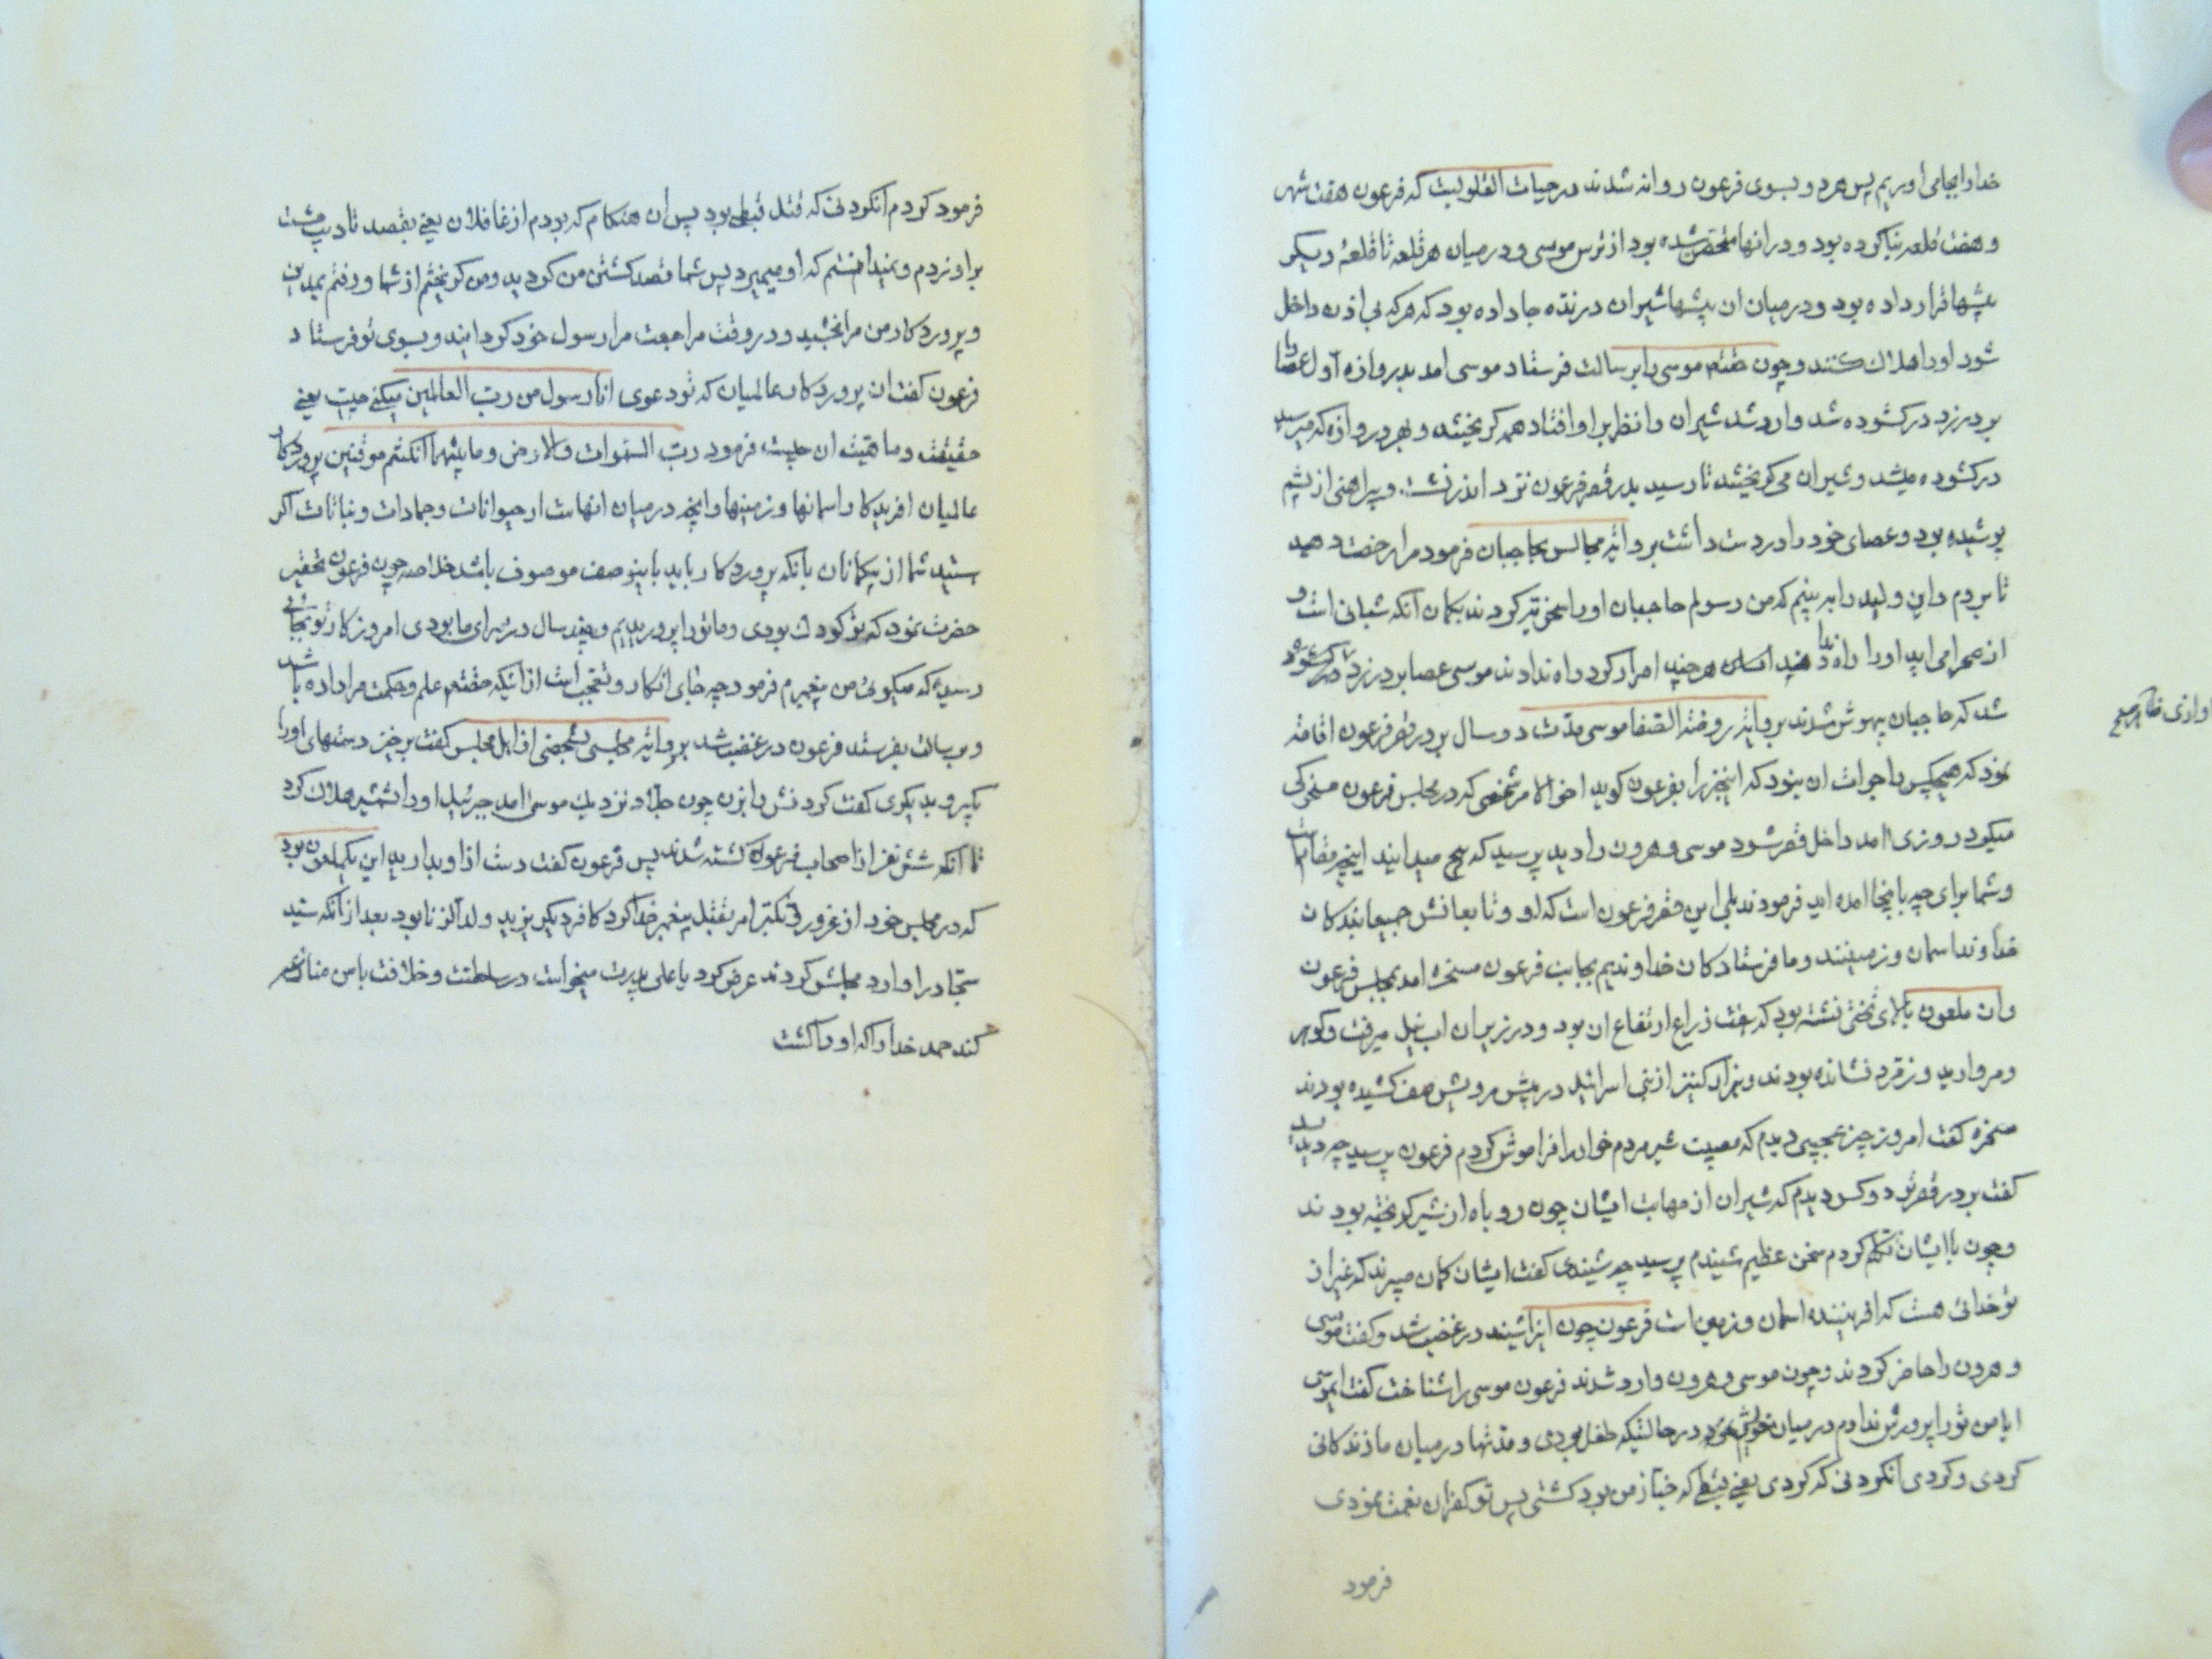 خدا را بجا می اوریم پس هر دو بسوی فرعون روانه شدند در حیات القلوبست که فرعون هفت شهر
و هفت قلعه بنا کوده بود و در انها متحصن شده بود از ترس موسی و در میان هر قلعه تا قلعهٔ دیکر
بیشها قرار داده بود و در میان ان بیشها شیران درنده جا داده بود که هر که بی اذن داخل
شود او را هلاک کنند و چون حقتعم موسی را برسالت فرستاد موسی امد بدروازه اول عصا را
بر در زد در کشوده شد وارد شد شیران را نظر بر او افتاد همه کریختند و بهر دروازه که میرسید
در کشوده میشد و شیران می کریختند تا رسید بدر قصر فرعون نزد اندر نشست و پیراهنی از پشم
پوشیده بود و عصای خود را در دست داشت بروایة مجالس بحاجبان فرمود مرا رخصت دهید
تا بروم و این ولید را به بینم که من رسولم حاجبان او را سخریه کردند بکمان آنکه شبانی است و
از صحرا می اید او را راه ندادند هر چند اصرار کرد راه ندادند موسی عصا بر در زد در کشوده
شد که حاجبان بیهوش شدند بروایة روضة الصفا موسی مدت دو سال بر در قصر فرعون اقامة
نمود که هیچکس را جرات ان نبود که اینخبر را بفرعون کوید اخر الامر شخصی که در مجلس فرعون مسخرکی
میکرد روزی امد داخل قصر شود موسی و هرون را دید پرسید که هیچ میدانید اینچه مقامست
و شما برای چه باینجا امده اید فرمودند بلی این قصر فرعون است که او و تابعانش جمیعا بندکان
خداوند اسمان و زمینند و ما فرستادکان خداوندیم بجانب فرعون مسخره امد بمجلس فرعون
و ان ملعون بالای تختی نشسته بود که هفت ذراع ارتفاع ان بود و در زیر ان اب نیل میرفت و کوهر
و مروارید و زمرد نشانده بودند و هزار کنیز از بنی اسرائیل در پیش رویش صف کشیده بودند
مسخره کفت امروز چیز عجیبی دیدم که مصیبت شیر مردم خوار را فراموش کردم فرعون پرسید چه دیدی
کفت بر در قصر تو دو کس دیدم که شیران از مهابت ایشان چون روباه از شیر کریخته بودند
و چون با ایشان تکلم کردم سخن عظیم شنیدم پرسید چه شنیدی کفت ایشان کمان میبرند که غیر از
تو خدائی هست که افریننده اسمان و زمین است فرعون چون اینرا شنید در غضب شد و کفت موسی
و هرون را حاضر کردند و چون موسی و هرون وارد شدند فرعون موسی را شناخت کفت ایموسی
ایا من تو را پرورش ندادم در میان خویش خود در حالتیکه طفل بودی و مدتها در میان ما زندکانی
کردی و کردی انکردنی که کردی یعنی قبطی که خباز من بود کشتی پس تو کفران نعمت نمودی
فرمود
فرمود کردم آنکردنی که قتل قبطی بود پس ان هنکام که بودم از غافلان یعنی بقصد تادیب مشت
بر او زدم و نمیدانستم که او میمیرد پس شما قصد کشتن من کردید و من کریختم از شما و رفتم بمدین
و پروردکار من مرا بخشید و در وقت مراجعت مرا رسول خود کردانید و بسوی تو فرستاد
فرعون کفت ان پروردکار عالمیان که تو دعوی انا رسول من رب العالمین میکنی چیست یعنی
حقیقت و ماهیت ان چیست فرمود رب السموات والارض و ما بینهما انکنتم موقنین پروردکار
عالمیان افریدکار اسمانها و زمینها و اینچه در میان انهاست از حیوانات و جمادات و نباتات اکر
هستید شما از بیکمانان بانکه پروردکار باید باینوصف موصوف باشد خلاصه چون فرعون تحقیر
حضرت نمود که تو کودک بودی و ما تو را پروریدیم و چند سال در سرای ما بودی امروز کار تو بجائی
رسیده که میکوئی من پیغمبرم فرمود چه جای انکار و تعجب است از اینکه حقتعم علم و حکمت مرا داده باشد
و برسالت بفرستد فرعون در غضب شد بروایة مجلسی بشخصی از اهل مجلس کفت برخیز دستهای او را
بکیر و بدیکری کفت کردنش را بزن چون جلاد نزدیک موسی امد جبرئیل او را بشمشیر هلاک کرد
تا آنکه شش نفر از اصحاب فرعون کشته شدند پس فرعون کفت دست از او بدارید این یکملعون بود
که در مجلس خود از غرور و تکبر امر بقتل پیغمبر خدا کرد کافر دیکر یزید ولد الزنا بود بعد از آنکه سید
سجاد را وارد مجلسش کردند عرض کرد یا علی پدرت میخواست در سلطنت و خلافت با من منازعه
کند حمد خدا را که او را کشت